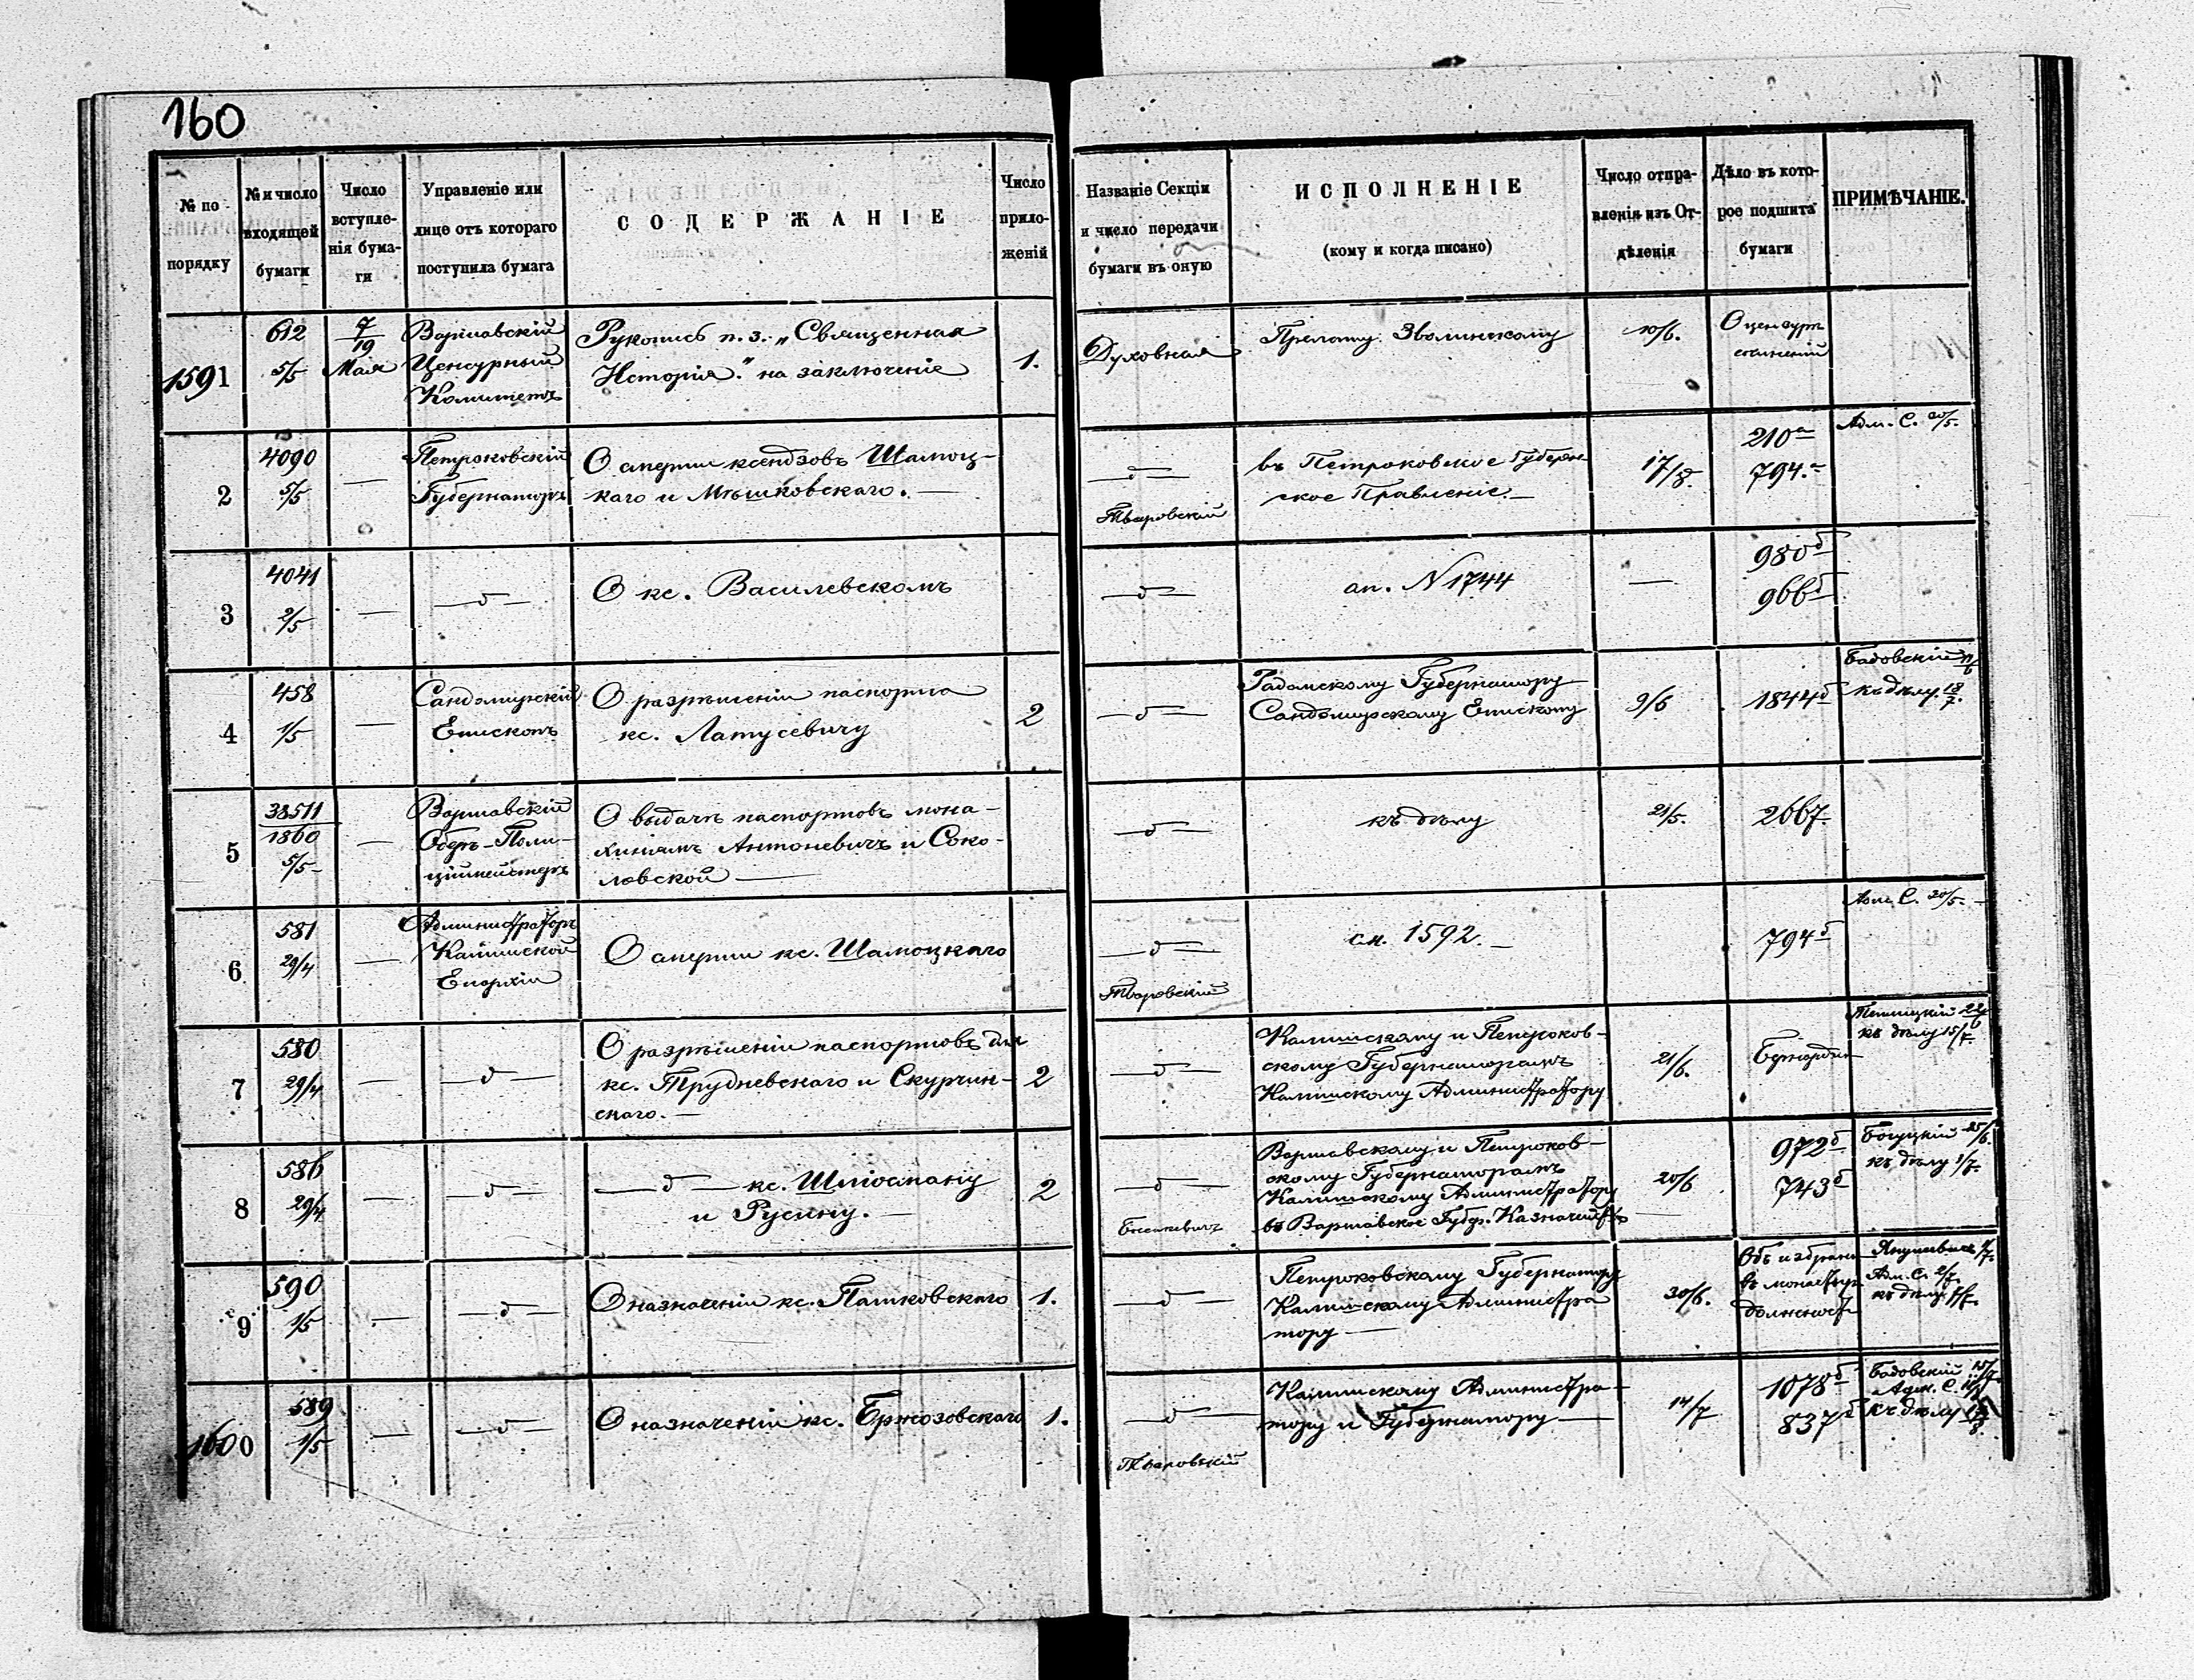 160
№ по порядку
№ и число входящей бумаги
Число вступленія бумаги
Управленіе или лице отъ котораго поступила бумага
СОДЕРЖАНІЕ
Число приложеній
Названіе Секціи и число передачи бумаги въ оную
ИСПОЛНЕНІЕ
(кому и когда писано)
Число отправленія изъ Отдѣленія
Дѣло въ которое подшита бумаги
ПРИМѢЧАНІЕ.
1591
612
5/5
7/19
Мая
Варшавскій
Цензурный
Комитетъ
Рукопись п. з. „Священная
Исторія" на заключеніе
1.
Духовная
Прелату Зволинскому
10/6.
О цензурѣ
сочиненій
2
4090
5/5
—
Петроковскій
Губернаторъ
О смерти ксендзовъ Шамоц-
каго и Мѣшковскаго. —
—д—
Тваровскій
въ Петроковское Губерн-
ское Правленіе. —
17/8.
210а
794.
Адм. С. 20/5.
3
4041
2/5
—
—д—
О кс. Василевскомъ
—д—
ап. N 1744
—
980б
966б
4
458
1/5
—
Сандомирскій
Епископъ
О разрѣшеніи паспорта
кс. Латусевичу
2
—д—
Радомскому Губернатору
Сандомирскому Епископу
9/6
1844б
Бадовскій
къ дѣлу 18/7.
5
38511
1860
5/5
—
Варшавскій
Оберъ-Поли-
ціймейстеръ
О выдачѣ паспортовъ мона-
хинямъ Антоневичъ и Соко-
ловской —
—д—
къ дѣлу
21/5.
2667.
6
581
29/4
—
Администраторъ
Калишской
Епархіи
О смерти кс. Шамоцкаго
—д—
Тваровскій
сн. 1592. —
794б
Адм. С. 20/5. —
7
580
29/4
—
—д—
О разрѣшеніи паспортовъ для
кс. Трудневскаго и Скурчин-
скаго. —
2
—д—
Калишскому и Петроков-
скому Губернаторамъ
Калишскому Администратору
21/6.
Бернардин
къ дѣлу 15/7.
8
586
29/4
—
—д—
—д— кс. Шпіоспаню
и Русину. —
2
—д—
Варшавскому и Петроков-
скому Губернаторамъ
Калишскому Администратору
въ Варшавское Губер. Казначейство
20/6
972б
743б
Богуцкій 25/6.
къ дѣлу 1/7.
9
590
1/5
—
—д—
О назначеніи кс. Пашковскаго
1.
—д—
Петроковскому Губернатору
Калишскому Администра
тору —
30/6.
Объ избраніи
въ монастыр.
должност
Адм. С. 2/7.
къ дѣлу
1600
589
1/5
—
—д—
О назначеніи кс. Бржозовскаго
1.
—д—
Тваровскій
Калишскому Администра-
тору и Губернатору —
14/7
1078б
837б
Бадовскій 15/7
Адм. С.
къ дѣлу